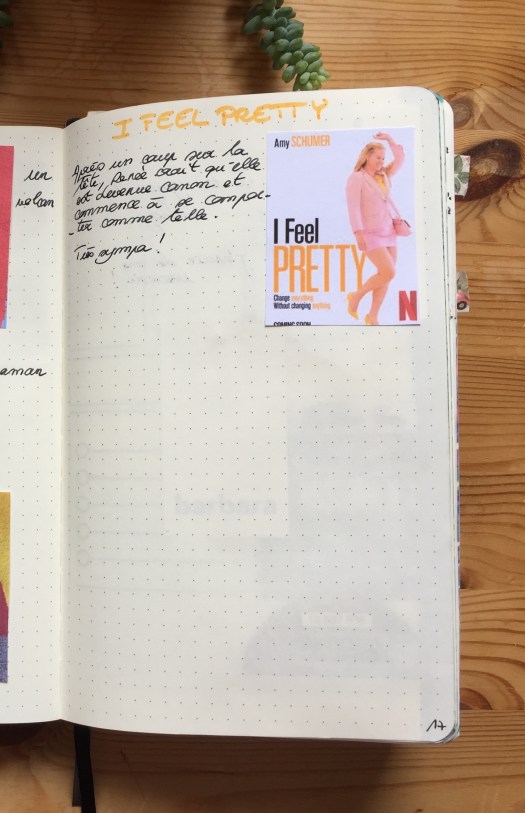 I FEEL PRETTY
Après un coup sur la
tête, Renée croit qu'elle
est devenue canon et
commence à se compor-
-ter comme telle.
Très sympa !
Amy SCHUMER
I Feel
PRETTY
Change everything
Without changing anything
COMING SOON
N
un
volcan
aman
barbara
17